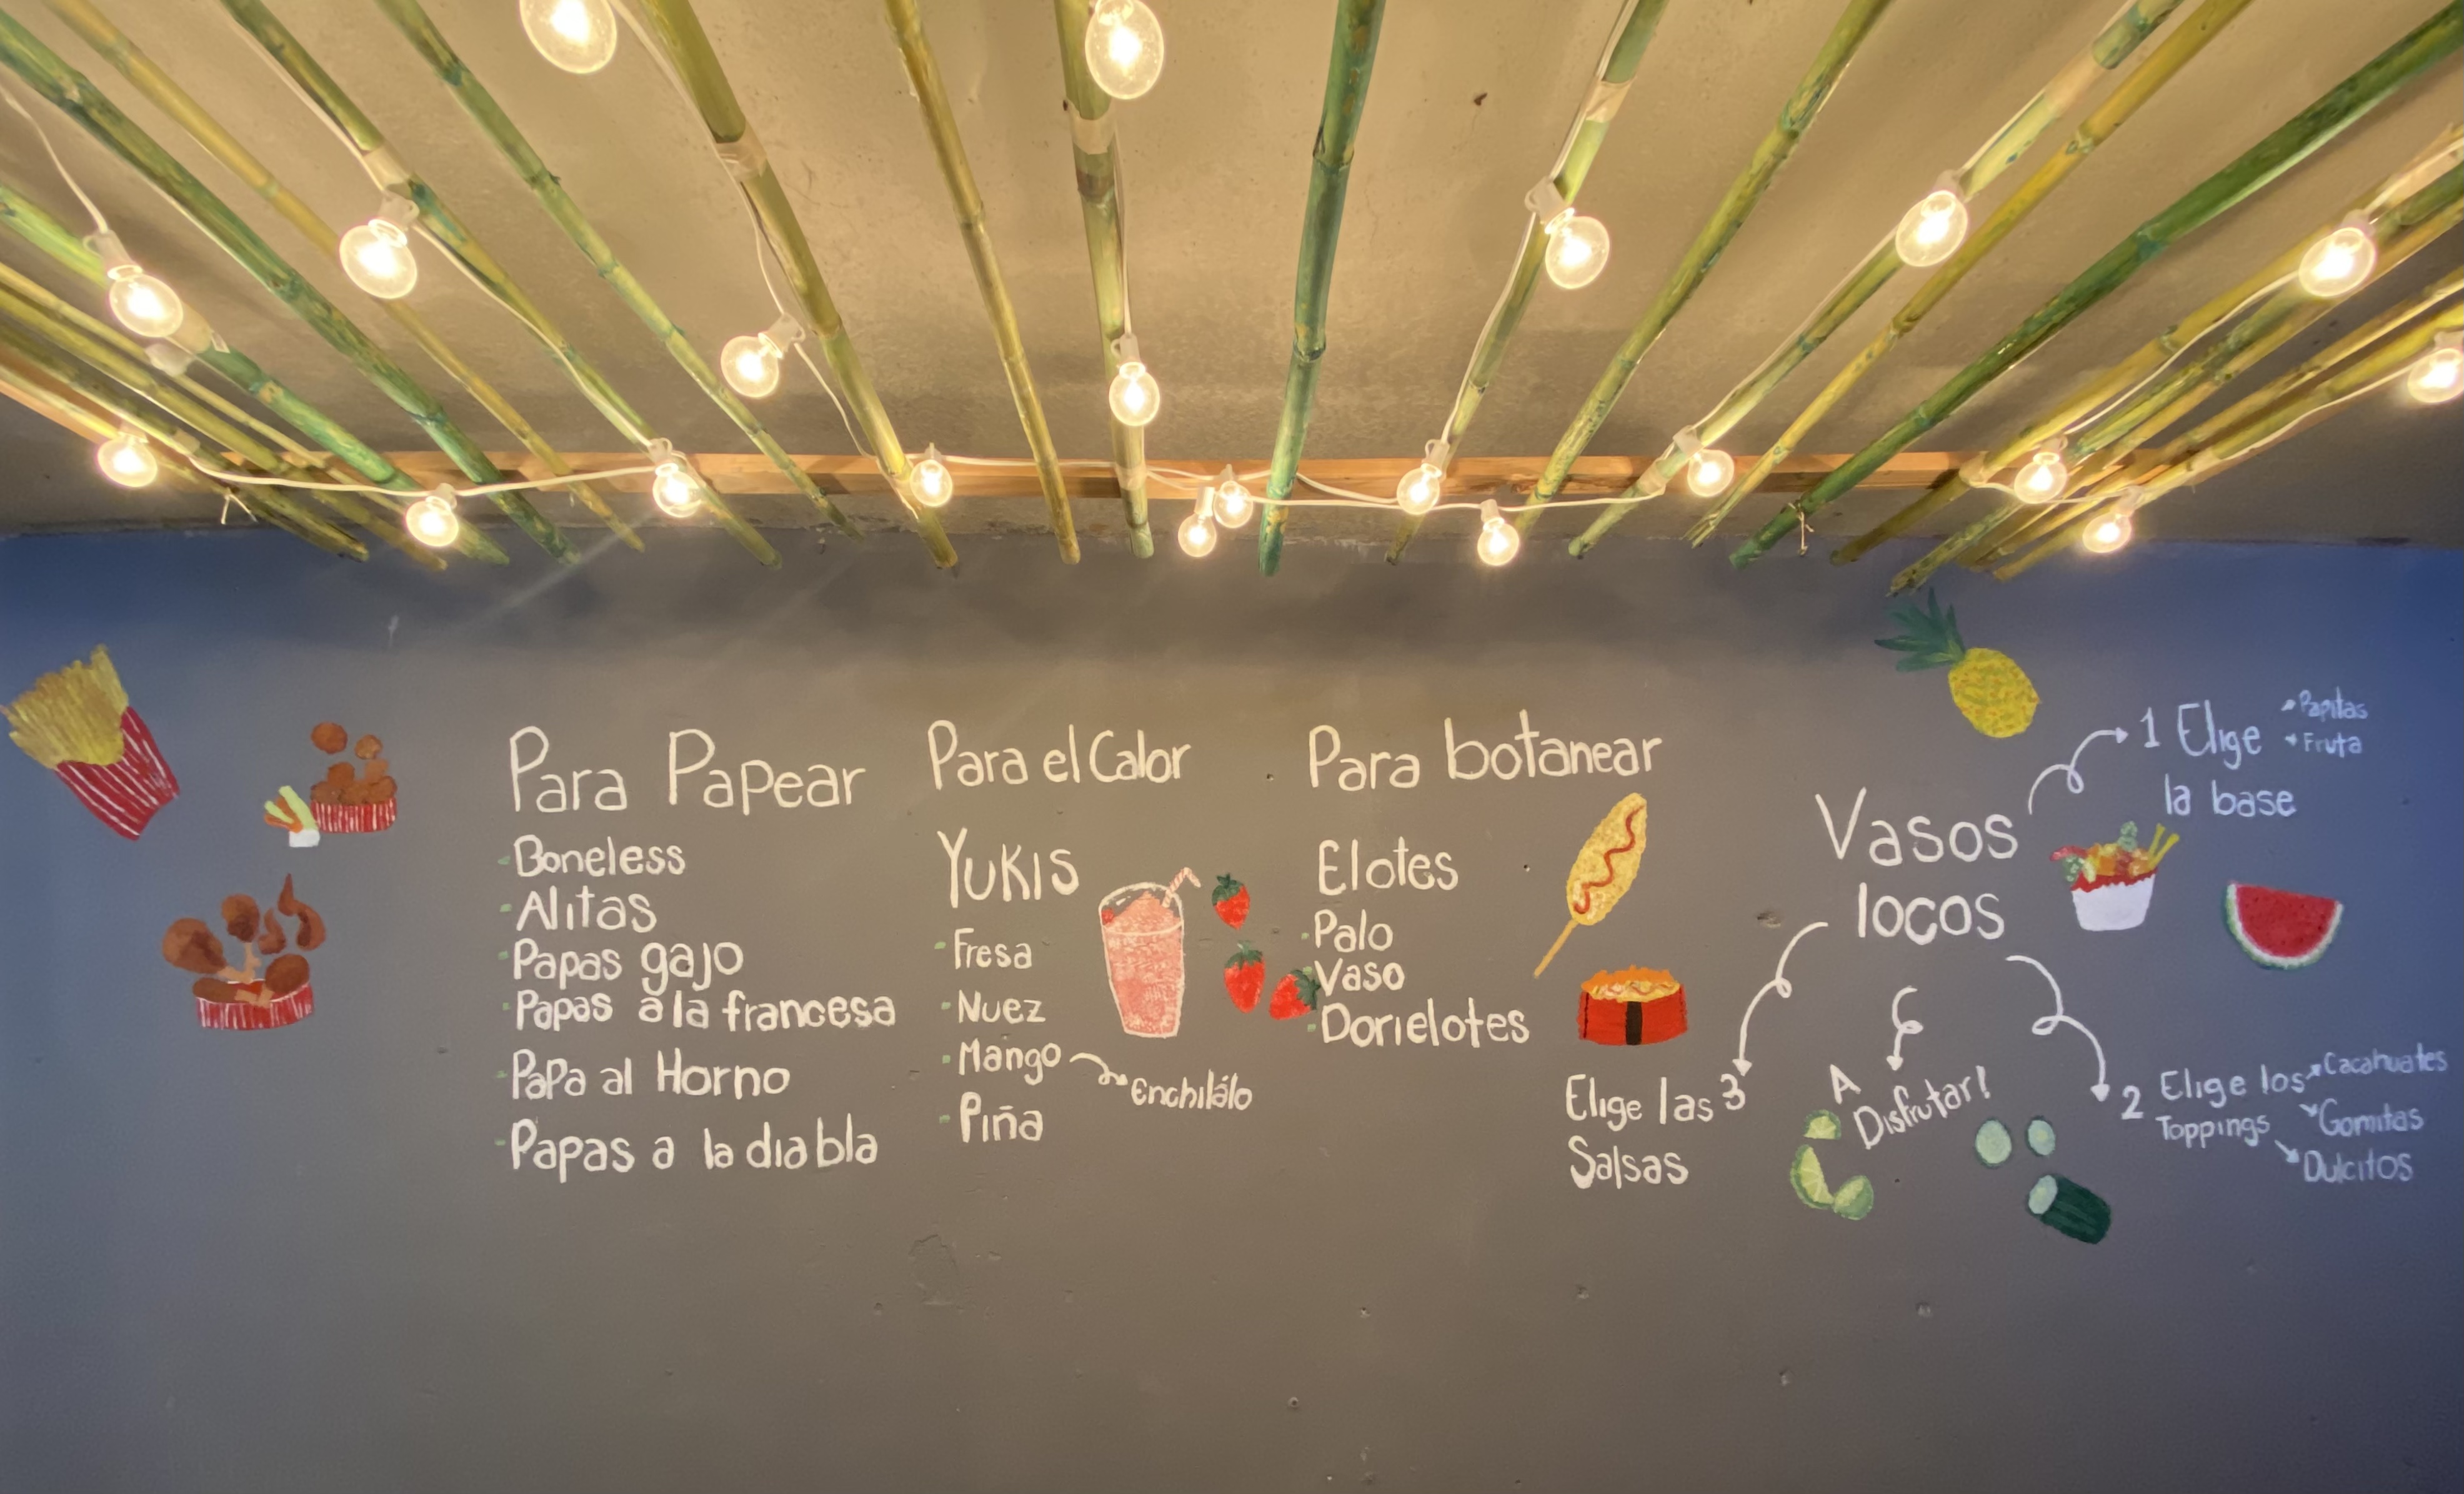 Para Papear
Boneless
Alitas
Papas gajo
Papas a la francesa
Papa al Horno
Papas a la diabla
Para el Calor
Yukis
Fresa
Nuez
Mango
Enchilálo
Piña
Para botanear
Elotes
Palo
Vaso
Dorielotes
Vasos
locos
1 Elige
la base
Papitas
Fruta
2 Elige los
Toppings
Cacahuates
Gomitas
Dulcitos
Elige las 3
Salsas
A
Disfrutar!